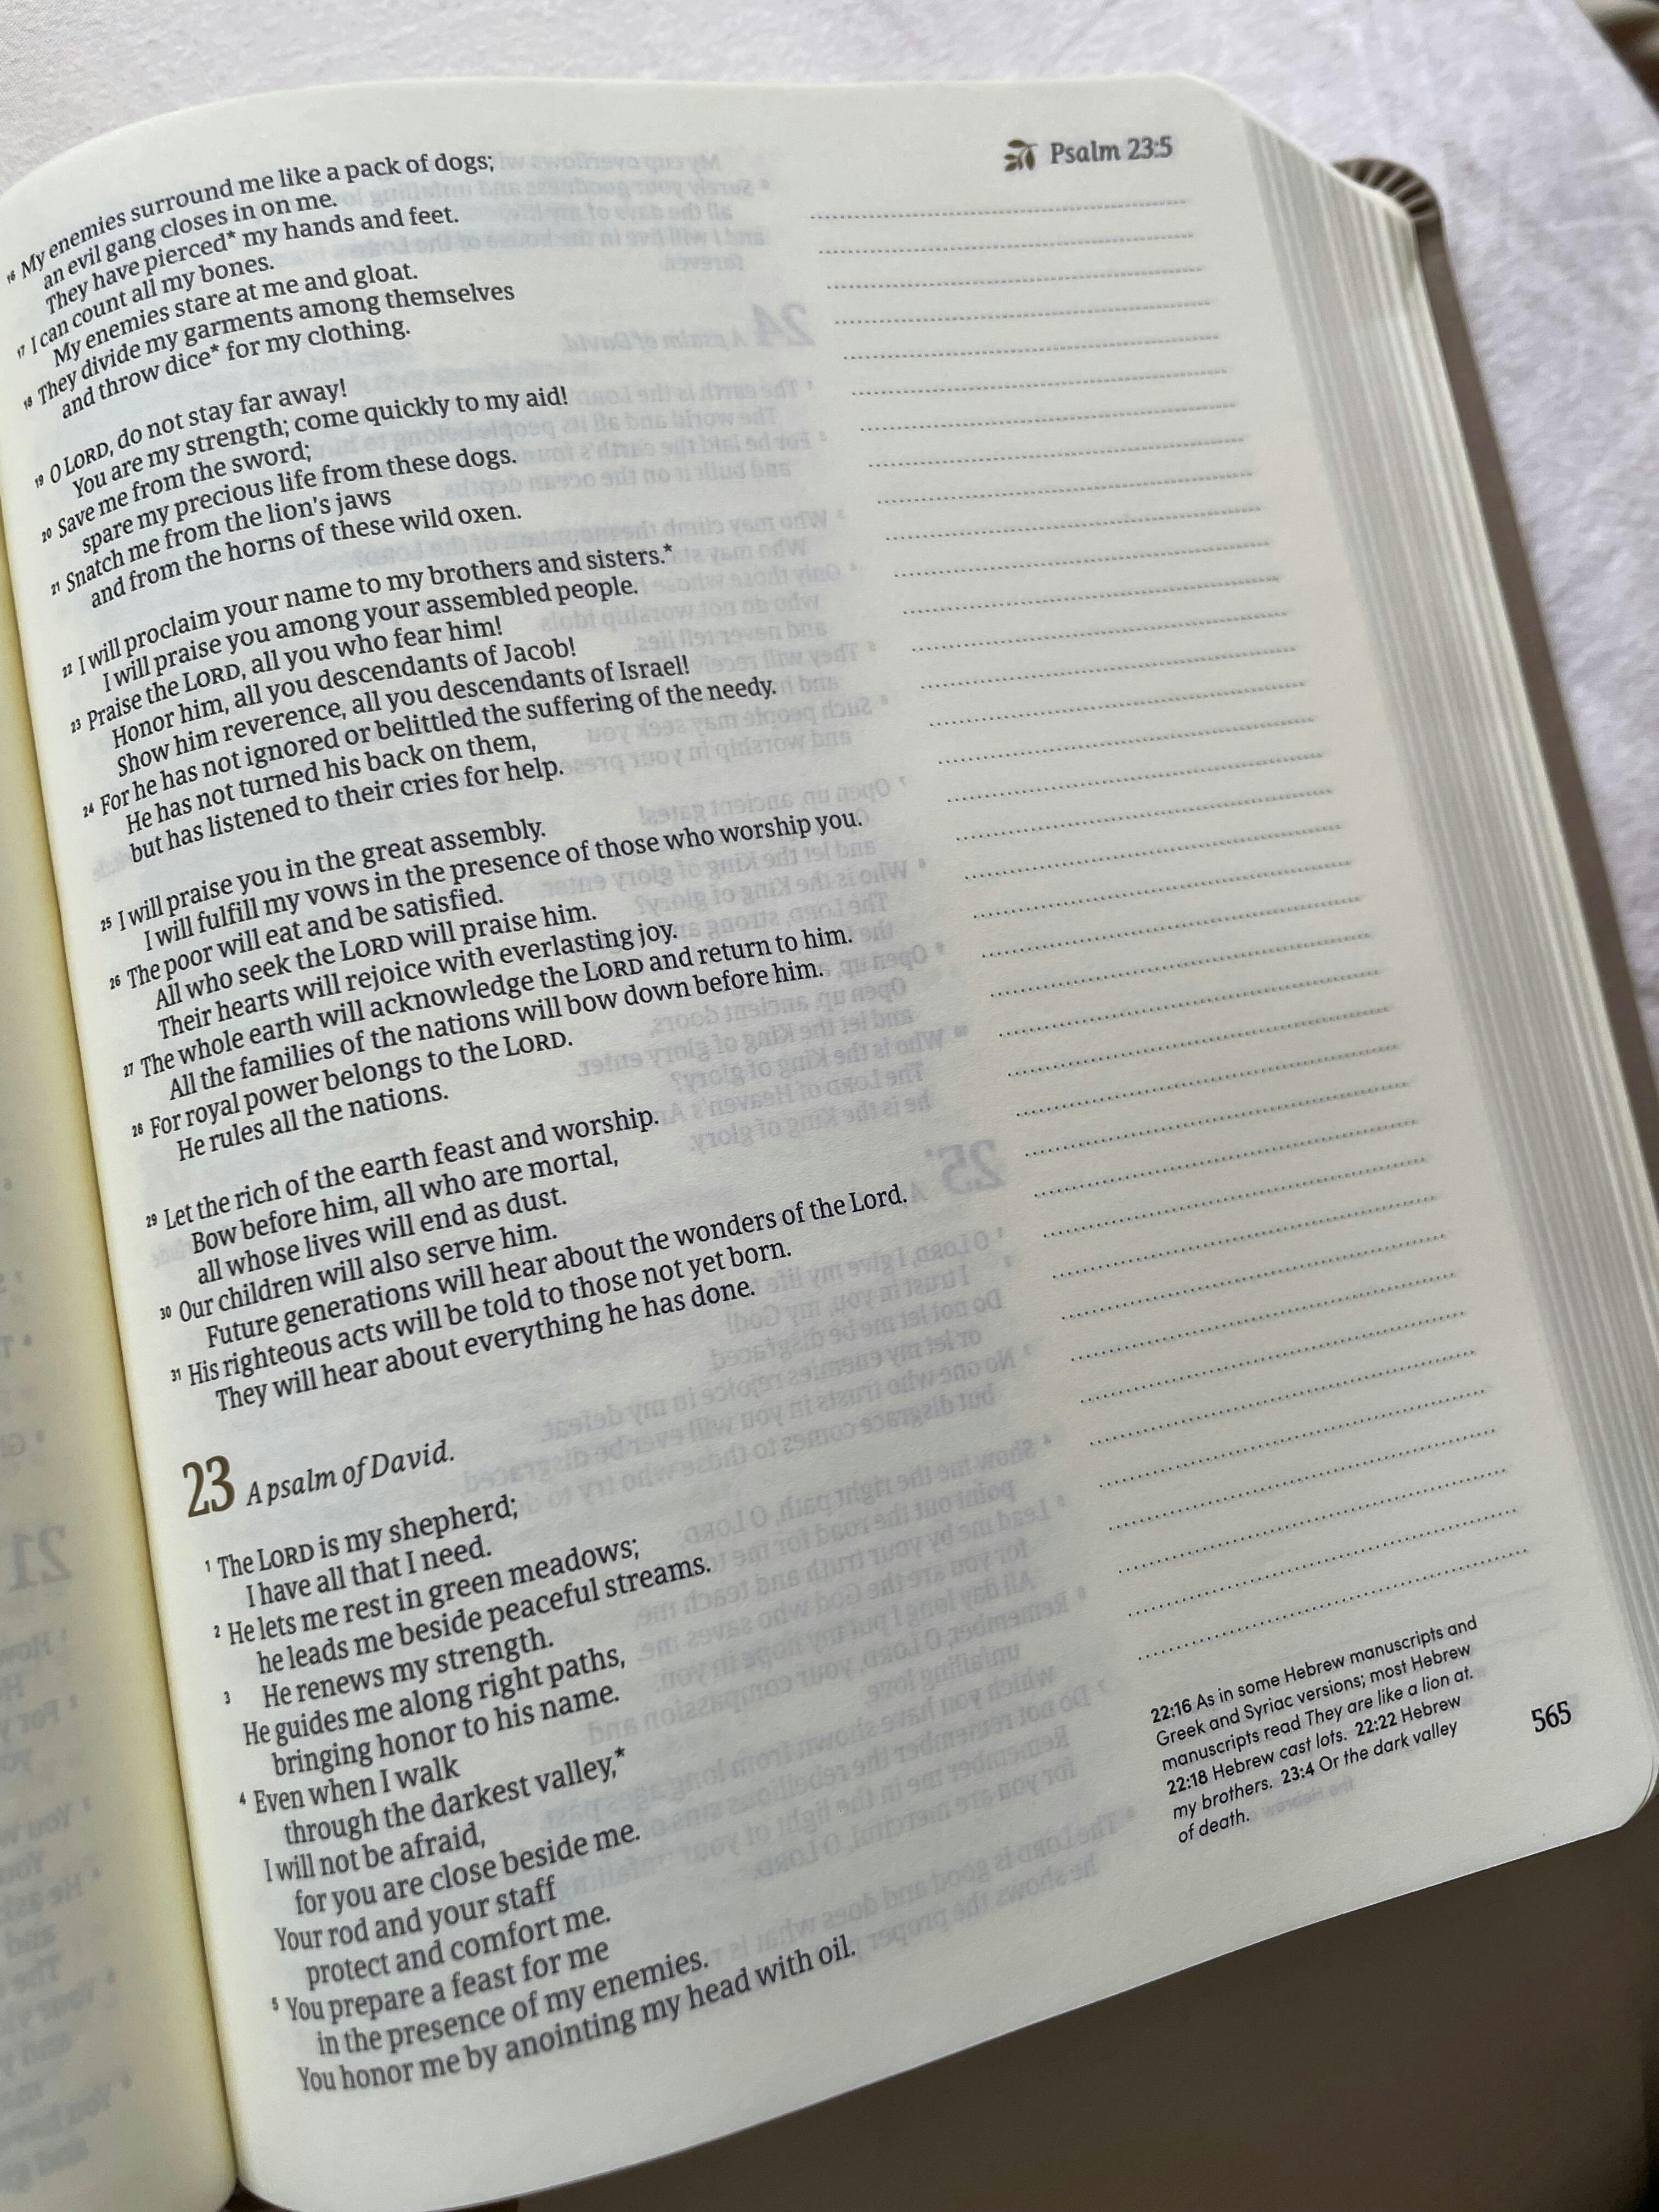 Psalm 23:5
16 My enemies surround me like a pack of dogs;
an evil gang closes in on me.
They have pierced* my hands and feet.
17 I can count all my bones.
My enemies stare at me and gloat.
18 They divide my garments among themselves
and throw dice* for my clothing.
19 O LORD, do not stay far away!
You are my strength; come quickly to my aid!
20 Save me from the sword;
spare my precious life from these dogs.
21 Snatch me from the lion's jaws
and from the horns of these wild oxen.
22 I will proclaim your name to my brothers and sisters.*
I will praise you among your assembled people.
23 Praise the LORD, all you who fear him!
Honor him, all you descendants of Jacob!
Show him reverence, all you descendants of Israel!
24 For he has not ignored or belittled the suffering of the needy.
He has not turned his back on them,
but has listened to their cries for help.
25 I will praise you in the great assembly.
I will fulfill my vows in the presence of those who worship you.
26 The poor will eat and be satisfied.
All who seek the LORD will praise him.
Their hearts will rejoice with everlasting joy.
27 The whole earth will acknowledge the LORD and return to him.
All the families of the nations will bow down before him.
28 For royal power belongs to the LORD.
He rules all the nations.
29 Let the rich of the earth feast and worship.
Bow before him, all who are mortal,
all whose lives will end as dust.
30 Our children will also serve him.
Future generations will hear about the wonders of the Lord.
31 His righteous acts will be told to those not yet born.
They will hear about everything he has done.
23 A psalm of David.
1 The LORD is my shepherd;
I have all that I need.
2 He lets me rest in green meadows;
he leads me beside peaceful streams.
3 He renews my strength.
He guides me along right paths,
bringing honor to his name.
4 Even when I walk
through the darkest valley,*
I will not be afraid,
for you are close beside me.
Your rod and your staff
protect and comfort me.
5 You prepare a feast for me
in the presence of my enemies.
You honor me by anointing my head with oil.
22:16 As in some Hebrew manuscripts and
Greek and Syriac versions; most Hebrew
manuscripts read They are like a lion at.
22:18 Hebrew cast lots. 22:22 Hebrew
my brothers. 23:4 Or the dark valley
of death.
565